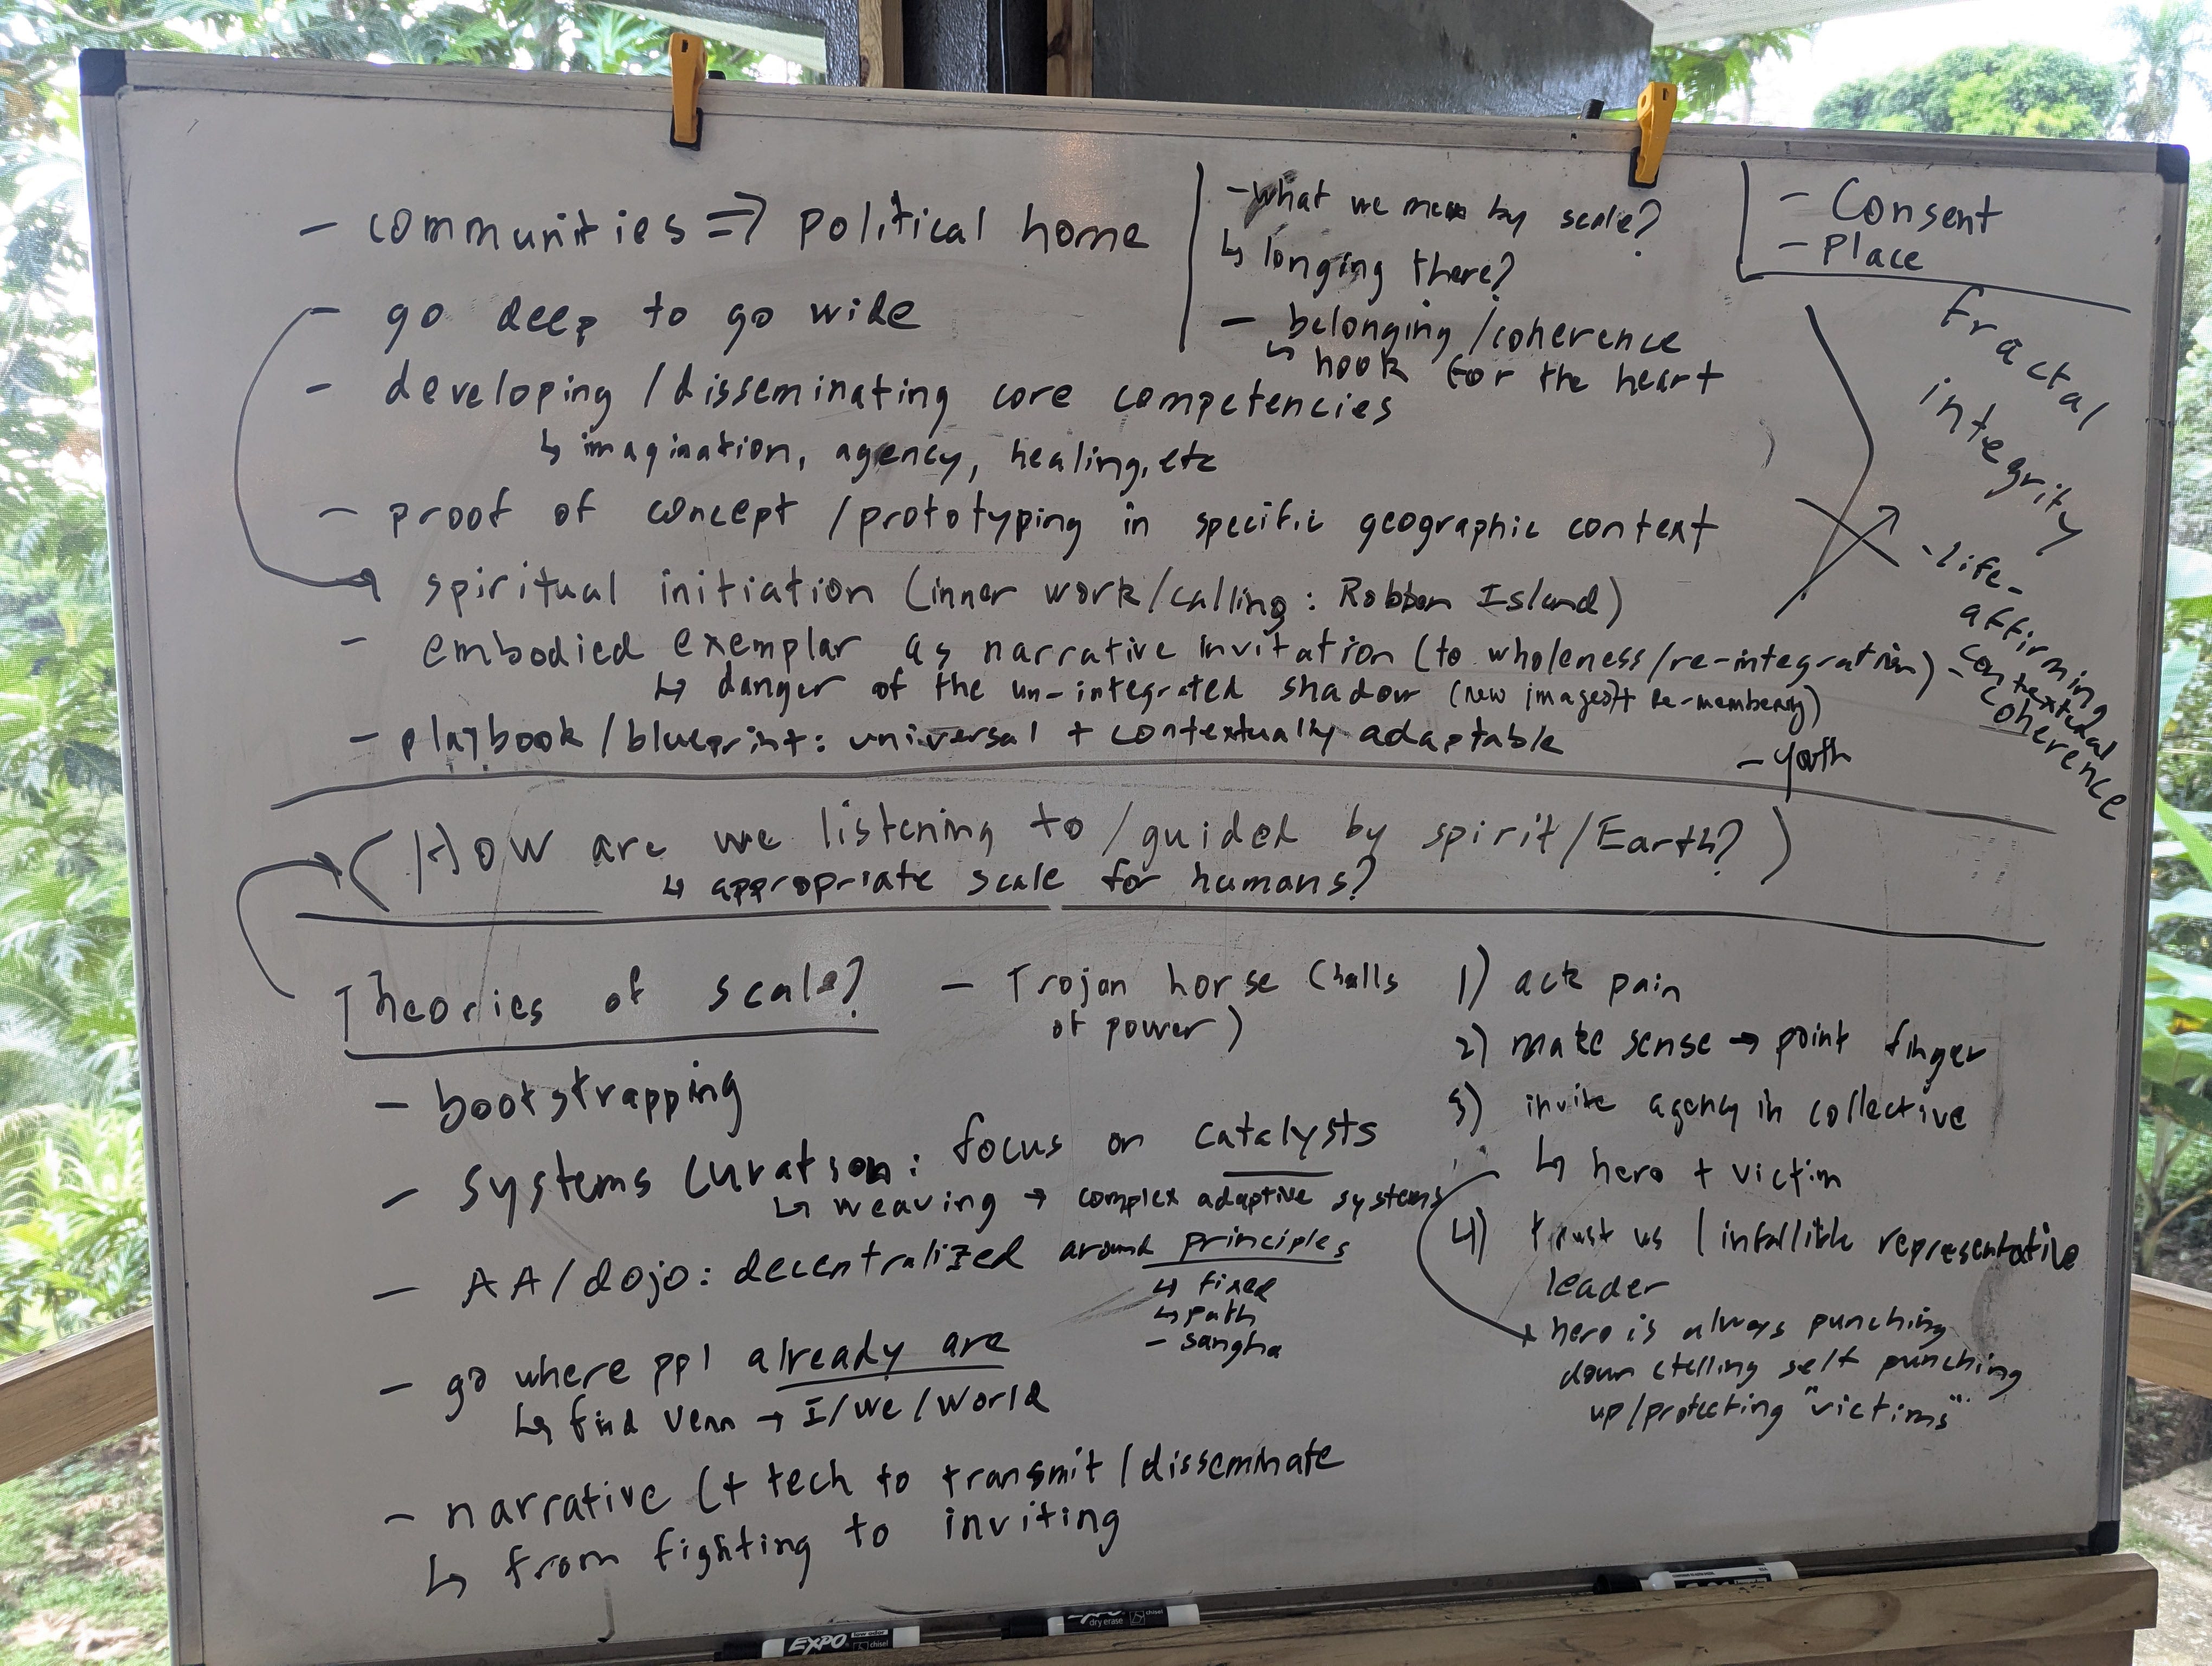 - communities => political home
- go deep to go wide
- developing / disseminating core competencies
↳ imagination, agency, healing, etc
- proof of concept / prototyping in specific geographic context
spiritual initiation (inner work/calling: Robben Island)
- embodied exemplar as narrative invitation (to wholeness/re-integration)
↳ danger of the un-integrated shadow (new images)+ re-membering)
- playbook / blueprint: universal + contextually adaptable
- what we mean by scale?
↳ longing there?
- belonging /coherence
↳ hook for the heart
- Consent
- Place
fractal
integrity
- life-
affirming
- contextual
coherence
- youth
(How are we listening to/guided by spirit/Earth?)
↳ appropriate scale for humans?
Theories of scale?
- Trojan horse (halls
of power)
- bootstrapping
- systems curation: focus on catalysts
↳ weaving → complex adaptive systems
- AA/dojo: decentralized around principles
↳ fixed
↳ path
- sangha
- go where ppl already are
↳ find Venn → I/we/world
- narrative (+ tech to transmit /disseminate
↳ from fighting to inviting
1) ack pain
2) make sense → point finger
3) invite agency in collective
↳ hero + victim
4) trust us / infallible representative
leader
hero is always punching
down (telling self punching
up/protecting "victims"
EXPO
low odor
chisel
EXPO
dry erase
chisel